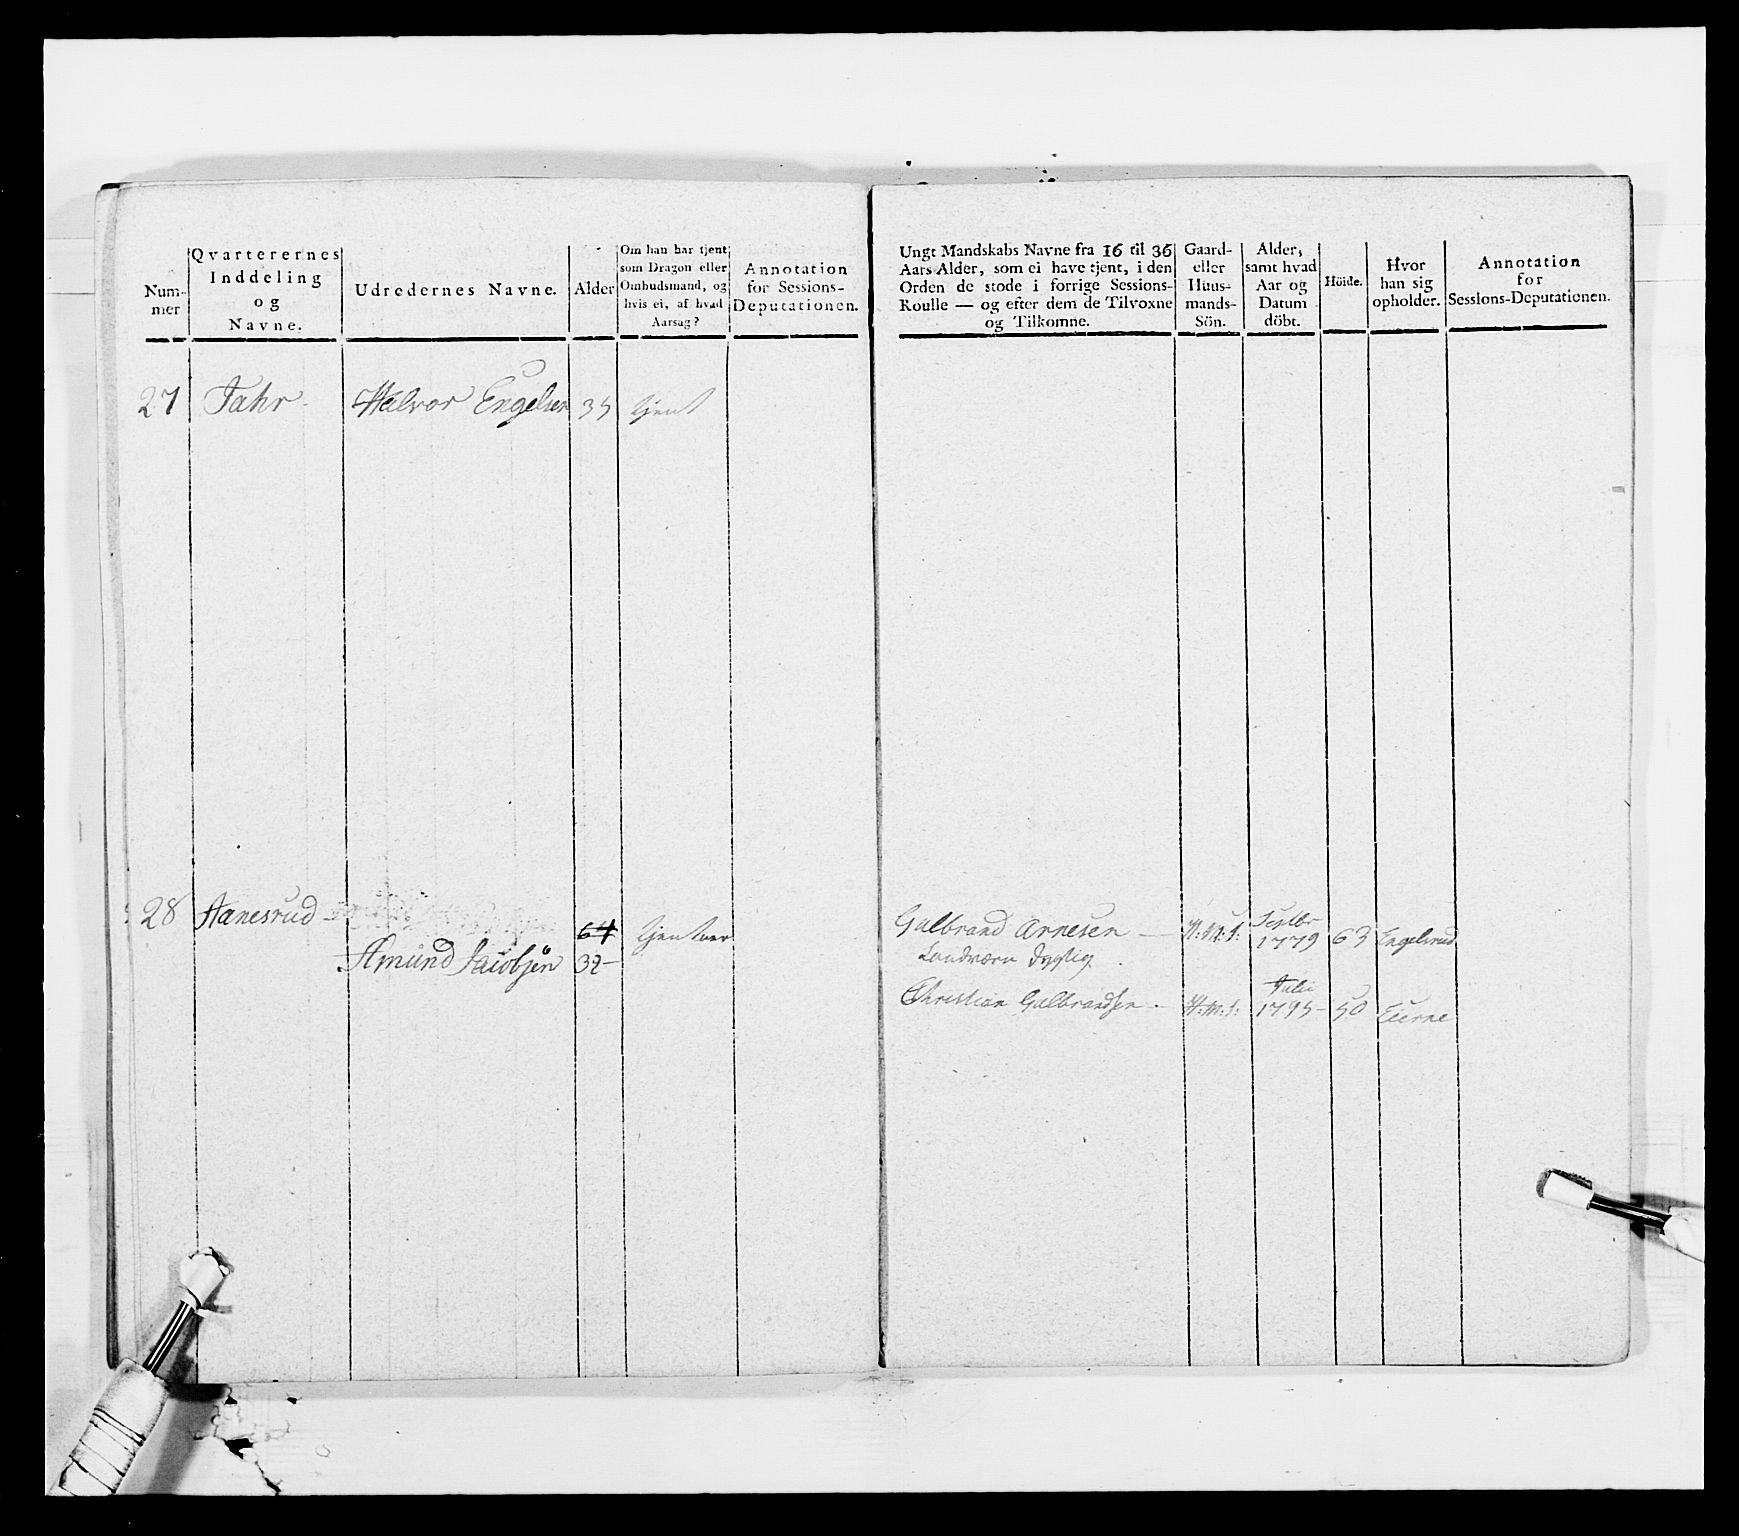 Num-
mer
Qvarterernes
Inddeling
og
Navne.
Udredernes Navne.
Alder
Om han har tjent
som Dragon eller
Ombudsmand, og
hvis ei, af hvad
Aarsag?
Annotation
for Sessions-
Deputationen.
27 Fahr. Halvor Engelsen 35 tjent
28 Hanesrud
64 tjent
Amund Jacobsen 32-
Ungt Mandskabs Navne fra 16 til 36
Aars Alder, som ei have tjent, i den
Orden de stode i forrige Sessions-
Roulle — og efter dem de Tilvoxne
og Tilkomne.
Gaard-
eller
Huus-
mands-
Sön.
Alder,
samt hvad
Aar og
Datum
döbt.
Höide.
Hvor
han sig
opholder.
Annotation
for
Sessions-Deputationen.
Gulbrand Arnesen — H:M:S: Septbr 1779 63 Engelsrud
Landværn dygtig.
Christian Gulbrandsen - H:M:S: Julii 1795- 50 Eierne